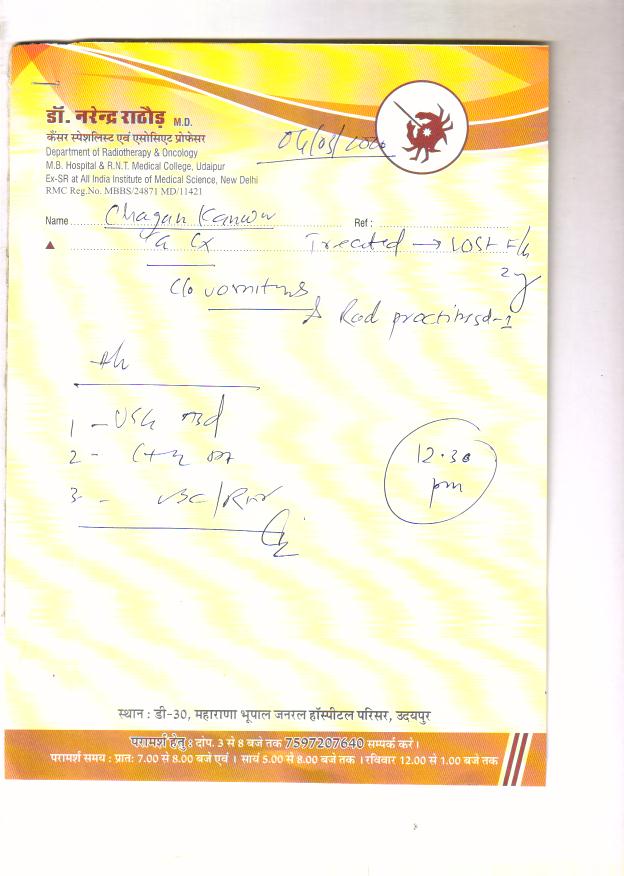 डॉ. नरेन्द्र राठौड़ M.D.
कैंसर स्पेशलिस्ट एवं एसोसिएट प्रोफेसर
Department of Radiotherapy & Oncology
M.B. Hospital & R.N.T. Medical College, Udaipur
Ex-SR at All India Institute of Medical Science, New Delhi
RMC Reg.No. MBBS/24871 MD/11421
Name Chagan Kanwar Ref :
Ca Cx Treated → LOST F/u
2y
C/o vomitings
1 - USG Abd
2 -
3 -
12.30
pm
स्थान : डी-30, महाराणा भूपाल जनरल हॉस्पीटल परिसर, उदयपुर
परामर्श हेतु : दोप. 3 से 8 बजे तक 7597207640 सम्पर्क करें ।
परामर्श समय : प्रातः 7.00 से 8.00 बजे एवं । सायं 5.00 से 8.00 बजे तक । रविवार 12.00 से 1.00 बजे तक